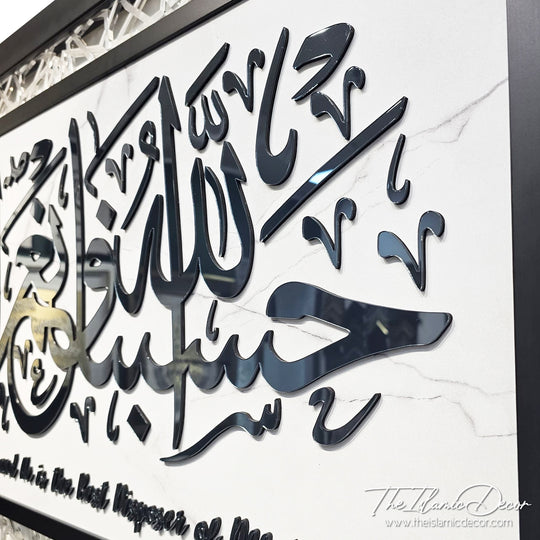 حسبنا الله ونعم
and He is The Best Disposer of
The Islamic Decor
www.theislamicdecor.com